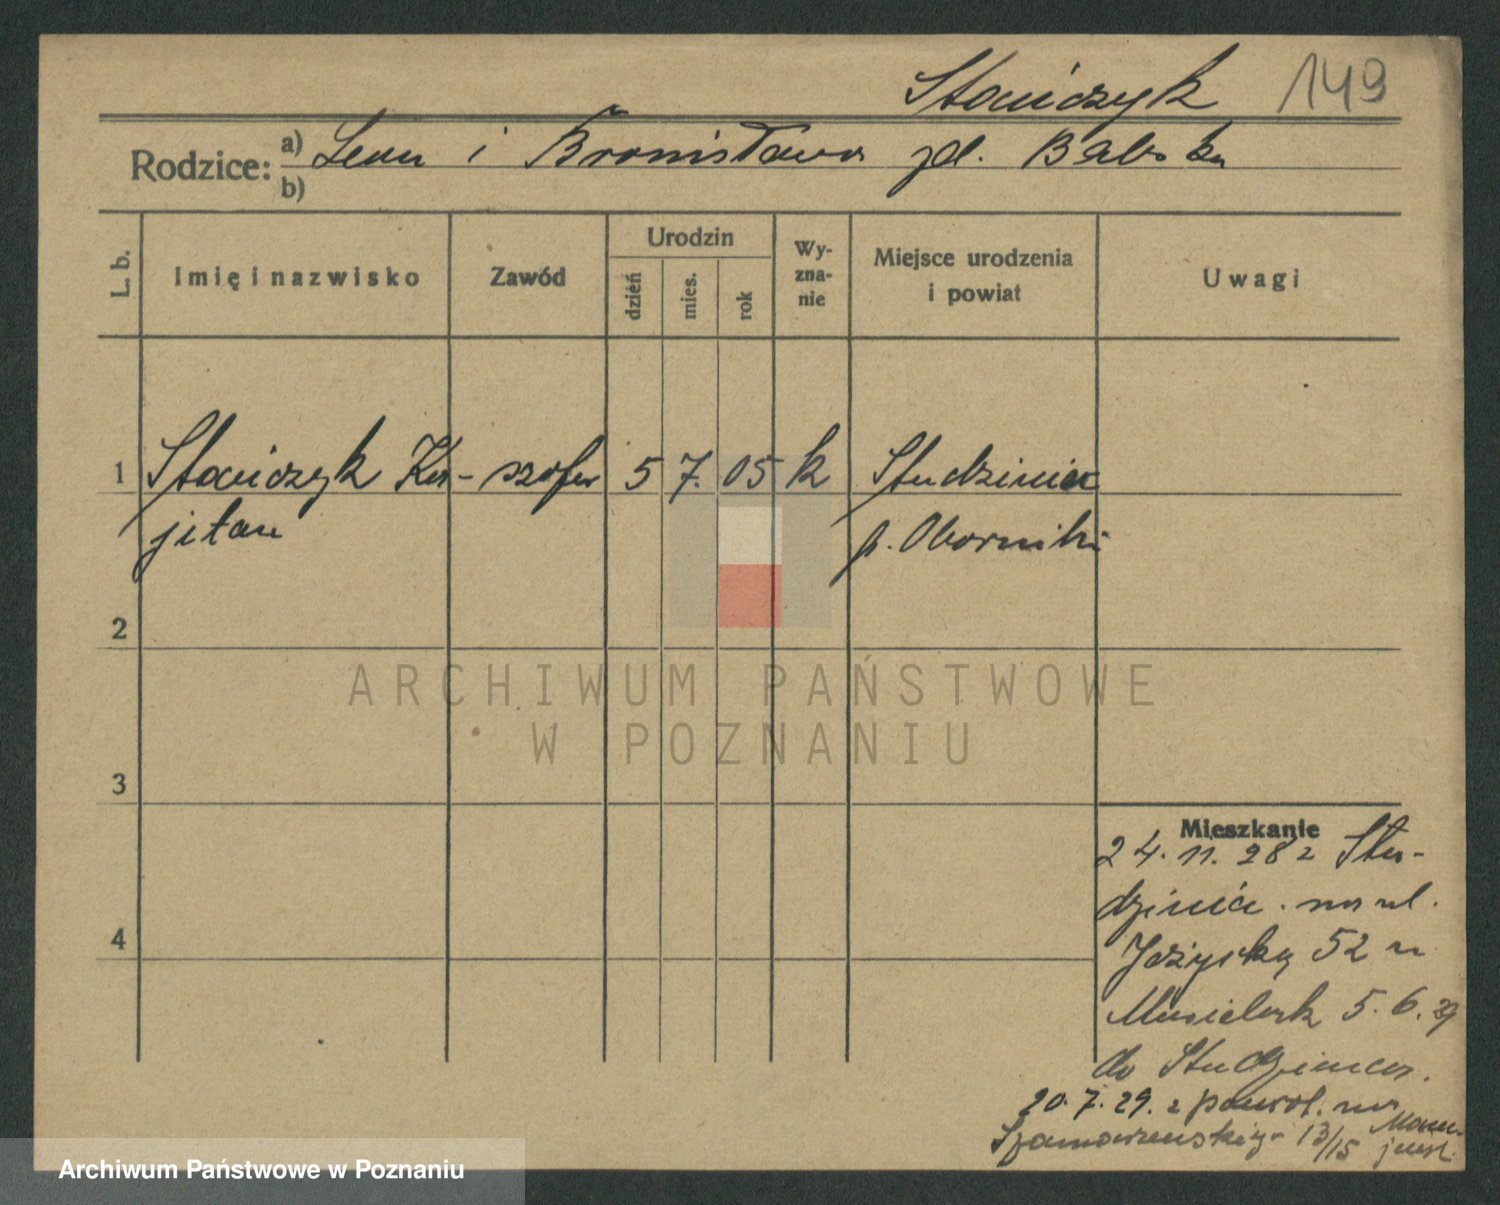 Stańczyk 149
Rodzice: a) Leon i Bronisława zd. Babska
b)
L. b. Imię i nazwisko Zawód Urodzin dzień mies. rok Wyzna-nie Miejsce urodzenia i powiat Uwagi
1 Stańczyk Ka- szofer 5 7. 05 k Studziniec
jetan p. Oborniki
2
ARCHIWUM PAŃSTWOWE
W POZNANIU
3
Mieszkanie
24. 11. 28 z Stu-
dzińca. na ul.
Jeżycką 52 u
4
5. 6. 29
do Studzieńca.
20. 7. 29. z powrot. na
Szamarzewskiego 13/15
Archiwum Państwowe w Poznaniu